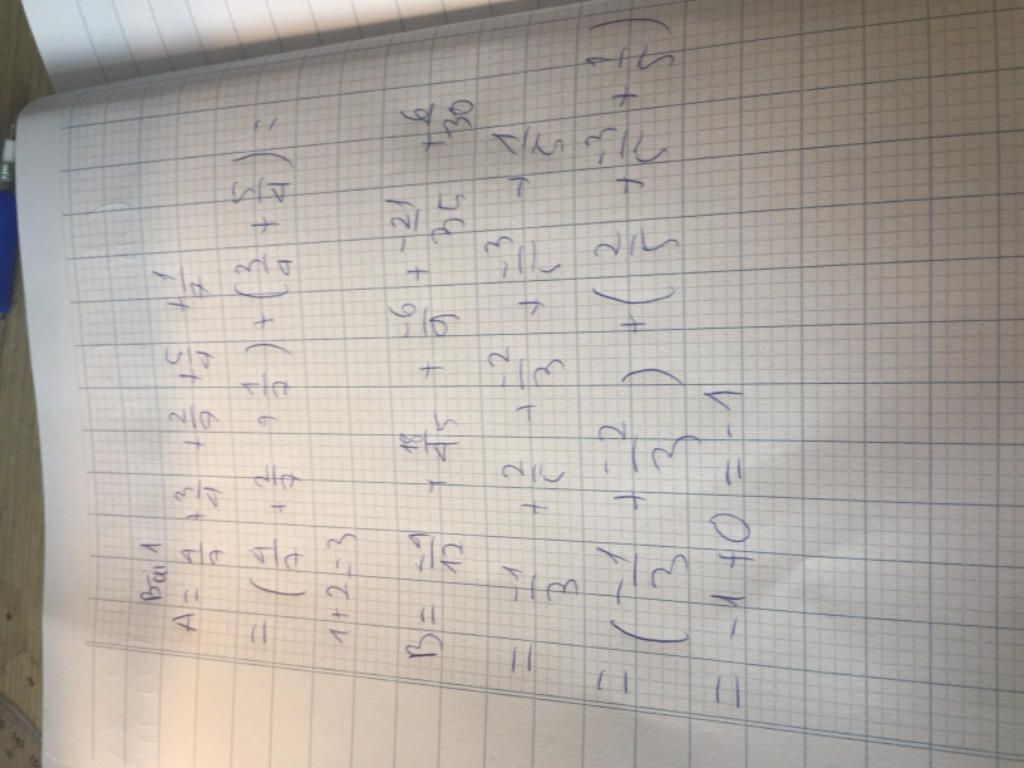 Bài 1
A = 4/7 + 3/4 + 2/7 + 5/4 + 1/7
= (4/7 + 2/7 + 1/7) + (3/4 + 5/4) =
1 + 2 = 3
B = -4/12 + 18/45 + -6/9 + -21/35 + 6/30
= -1/3 + 2/5 + -2/3 + -3/5 + 1/5
= (-1/3 + -2/3) + (2/5 + -3/5 + 1/5)
= -1 + 0 = -1